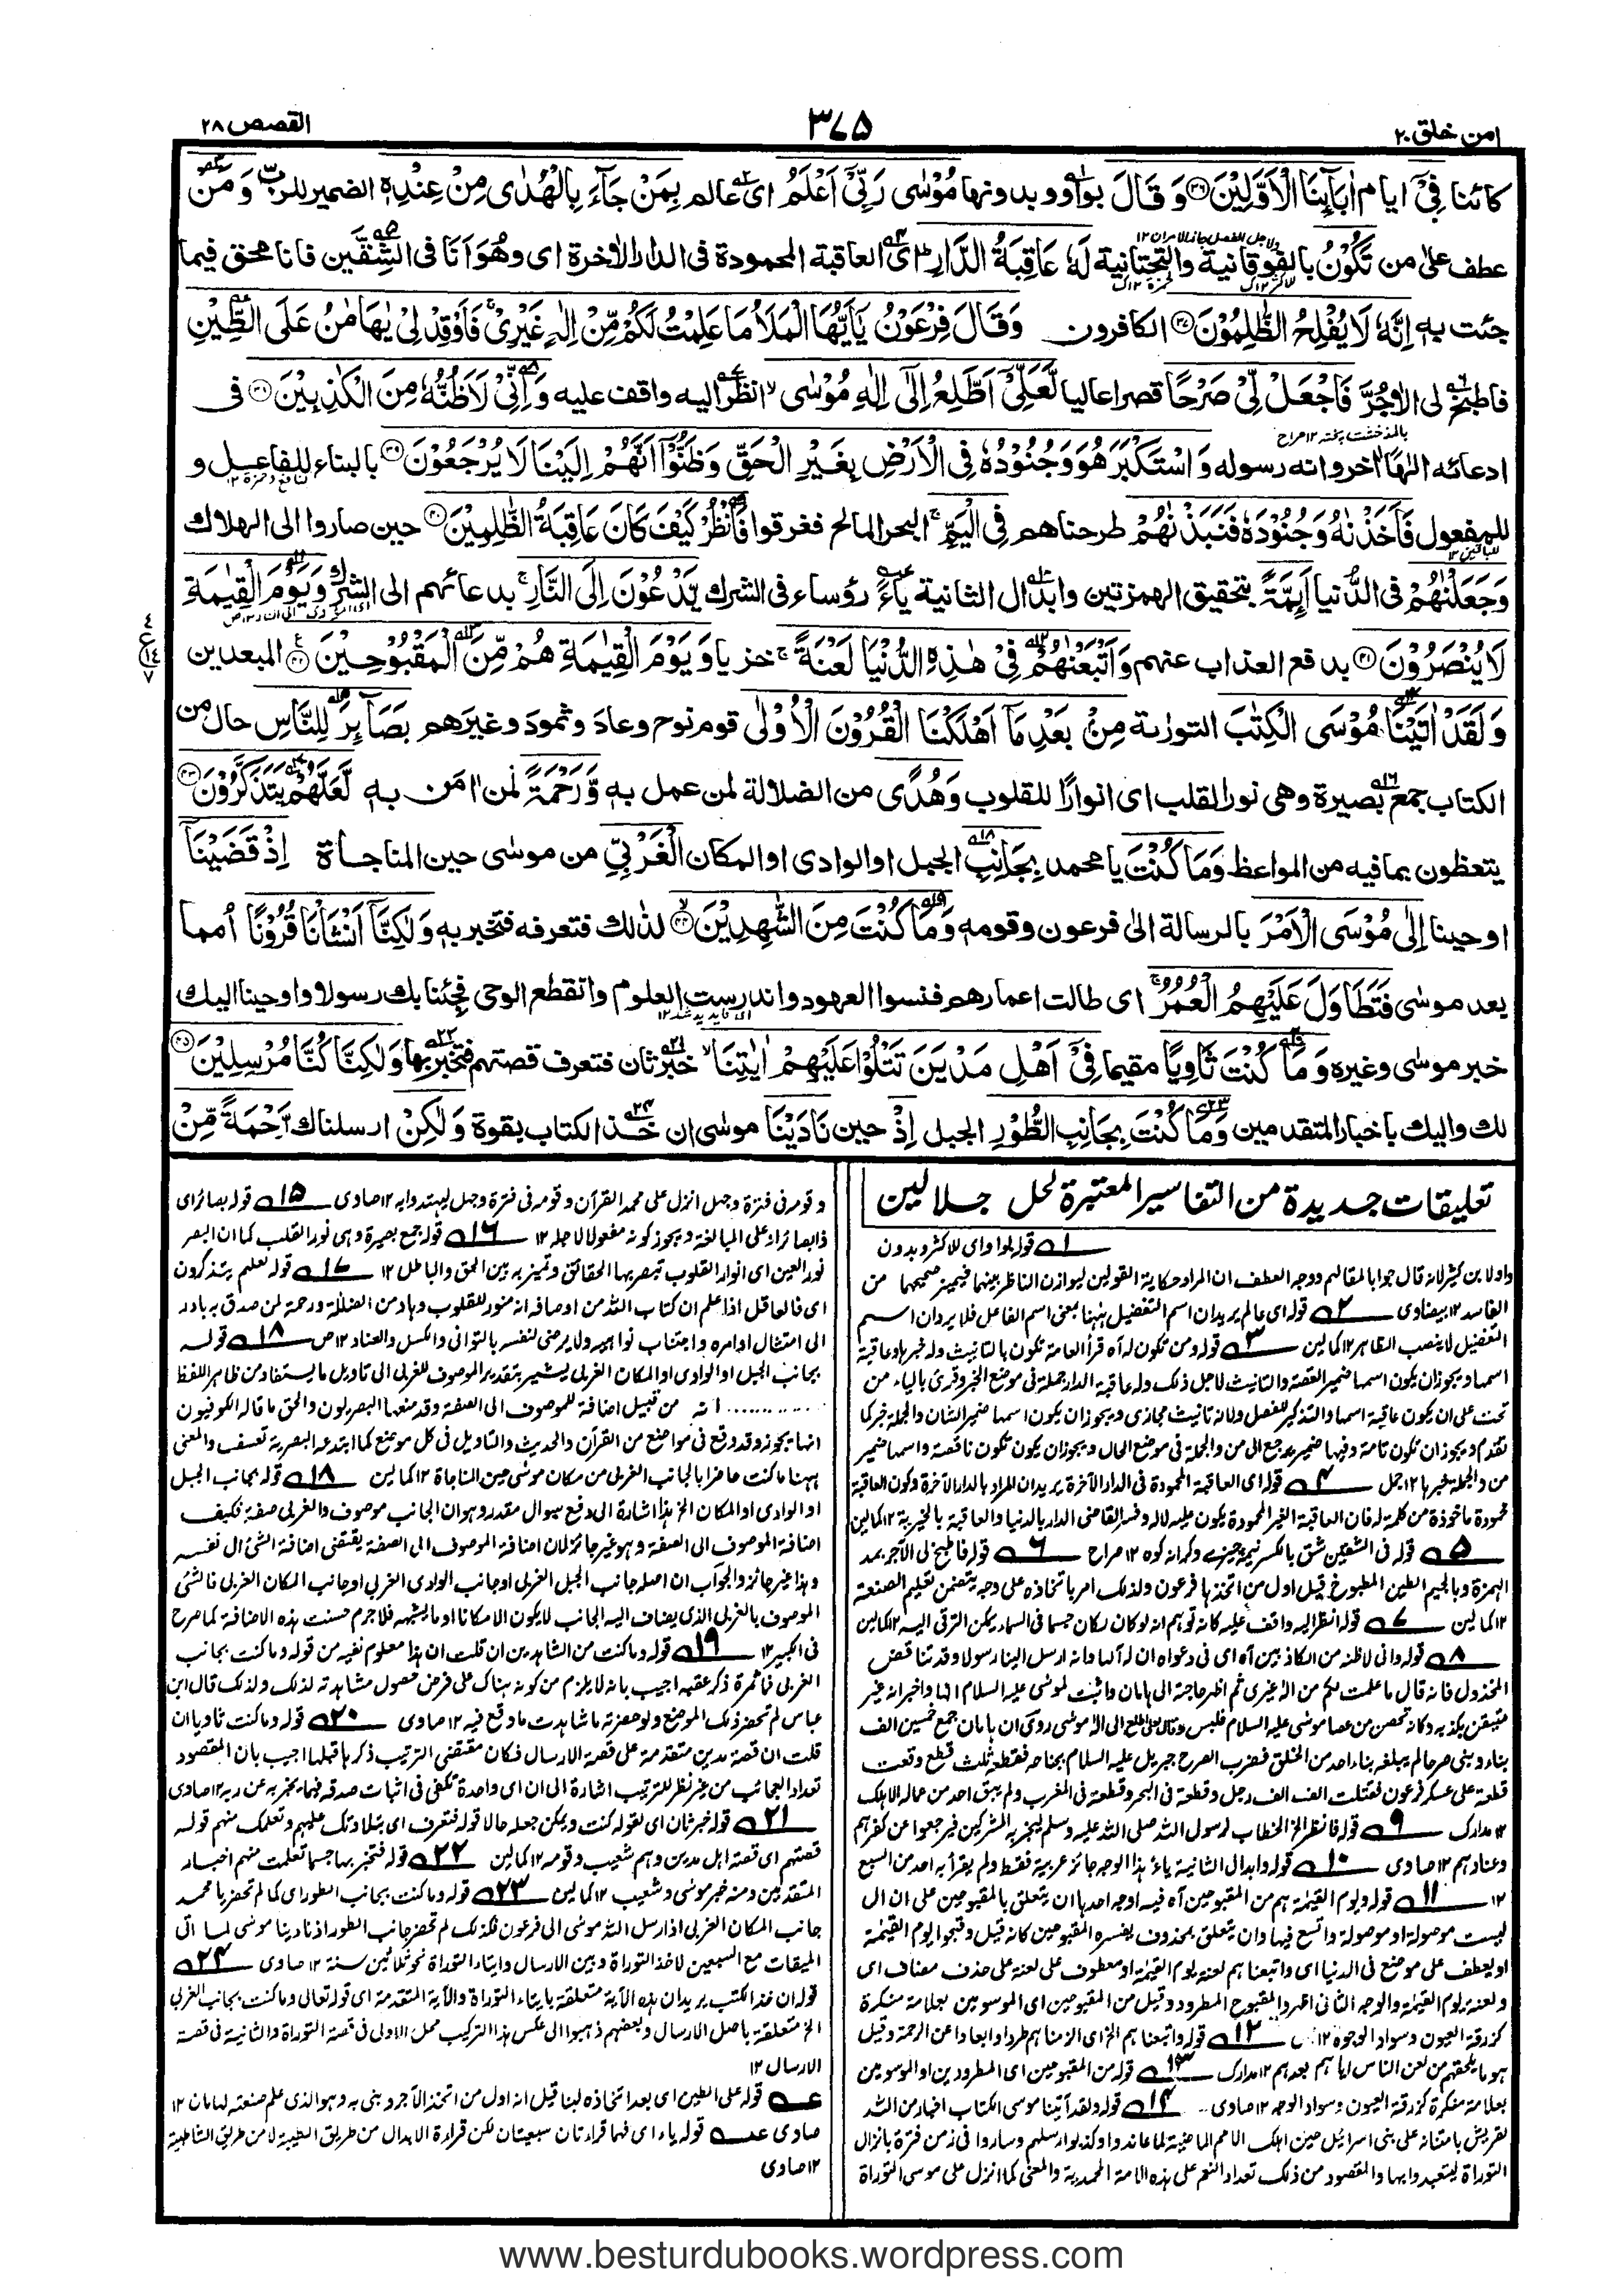 امن خلق ٢٠
٣٧٥
القصص ٢٨
كائنا فِيْٓ ايام اٰبَآئِنَا الْاَوَّلِيْنَ ۝٣٦ وَ قَالَ بواو و بدونها مُوْسٰى رَبِّيْٓ اَعْلَمُ اى عالم بِمَنْ جَآءَ بِالْهُدٰى مِنْ عِنْدِهٖ الضمير للرب وَ مَنْ
عطف على من تَكُوْنُ بالفوقانية والتحتانية لَهٗ عَاقِبَةُ الدَّارِ ؕ اى العاقبة المحمودة فى الدار الاخرة اى وهو انا فى الشقين فانا محق فيما
جئت به اِنَّهٗ لَا يُفْلِحُ الظّٰلِمُوْنَ ۝٣٧ الكافرون وَقَالَ فِرْعَوْنُ يٰٓاَيُّهَا الْمَلَاُ مَا عَلِمْتُ لَكُمْ مِّنْ اِلٰهٍ غَيْرِيْ ۚ فَاَوْقِدْ لِيْ يٰهَامٰنُ عَلَى الطِّيْنِ
فاطبخ لى الاجُرَّ فَاجْعَلْ لِّيْ صَرْحًا قصرا عاليا لَّعَلِّيْٓ اَطَّلِعُ اِلٰٓى اِلٰهِ مُوْسٰى ۙ انظر اليه واقف عليه وَاِنِّيْ لَاَظُنُّهٗ مِنَ الْكٰذِبِيْنَ ۝٣٨ فى
ادعائه الٰهًا اخر وانه رسوله وَاسْتَكْبَرَ هُوَ وَجُنُوْدُهٗ فِى الْاَرْضِ بِغَيْرِ الْحَقِّ وَظَنُّوْٓا اَنَّهُمْ اِلَيْنَا لَا يُرْجَعُوْنَ ۝٣٩ بالبناء للفاعل و
للمفعول فَاَخَذْنٰهُ وَجُنُوْدَهٗ فَنَبَذْنٰهُمْ طرحناهم فِى الْيَمِّ ۚ البحر المالح فغرقوا فَانْظُرْ كَيْفَ كَانَ عَاقِبَةُ الظّٰلِمِيْنَ ۝٤٠ حين صاروا الى الهلاك
وَجَعَلْنٰهُمْ فى الدُّنيا اَئِمَّةً بتحقيق الهمزتين وابدال الثانية ياءً رؤساء فى الشرك يَّدْعُوْنَ اِلَى النَّارِ ۚ بدعائهم الى الشرك وَيَوْمَ الْقِيٰمَةِ
لَا يُنْصَرُوْنَ ۝٤١ بدفع العذاب عنهم وَاَتْبَعْنٰهُمْ فِيْ هٰذِهِ الدُّنْيَا لَعْنَةً ۚ خزيا وَيَوْمَ الْقِيٰمَةِ هُمْ مِّنَ الْمَقْبُوْحِيْنَ ۝٤٢ المبعدين
وَلَقَدْ اٰتَيْنَا مُوْسَى الْكِتٰبَ التورٰىة مِنْۢ بَعْدِ مَآ اَهْلَكْنَا الْقُرُوْنَ الْاُوْلٰى قوم نوح وعاد و ثمود وغيرهم بَصَآئِرَ لِلنَّاسِ حال من
الكتاب جمع بصيرة وهى نور القلب اى انوارًا للقلوب وَهُدًى من الضلالة لمن عمل به وَّرَحْمَةً لمن اٰمن به لَّعَلَّهُمْ يَتَذَكَّرُوْنَ ۝٤٣
يتعظون بما فيه من المواعظ وَمَا كُنْتَ يا محمد بِجَانِبِ الجبل او الوادى او المكان الْغَرْبِيِّ من موسٰى حين المناجاة اِذْ قَضَيْنَآ
اوحينا اِلٰى مُوْسَى الْاَمْرَ بالرسالة الى فرعون وقومه وَمَا كُنْتَ مِنَ الشّٰهِدِيْنَ ۝٤٤ لذٰلك فتعرفه فتخبر به وَلٰكِنَّآ اَنْشَاْنَا قُرُوْنًا اُمما
بعد موسٰى فَتَطَاوَلَ عَلَيْهِمُ الْعُمُرُ ۚ اى طالت اعمارهم فنسوا العهود واندرست العلوم وانقطع الوحى فجئنا بك رسولا واوحينا اليك
خبر موسٰى وغيره وَمَا كُنْتَ ثَاوِيًا مقيما فِيْٓ اَهْلِ مَدْيَنَ تَتْلُوْا عَلَيْهِمْ اٰيٰتِنَا ۙ خبر ثان فتعرف قصتهم فتخبر بها وَلٰكِنَّا كُنَّا مُرْسِلِيْنَ ۝٤٥
لك واليك باخبار المتقدمين وَمَا كُنْتَ بِجَانِبِ الطُّوْرِ الجبل اِذْ حين نَادَيْنَا موسٰى ان خذ الكتاب بقوة وَلٰكِنْ ارسلناك رَّحْمَةً مِّنْ
تعليقات جديدة من التفاسير المعتبرة لحل جلالين
١ قوله بواو اى للاكثر وبدون
واو لابن كثير لانه قال جوابا لمقالهم ووجه العطف ان المراد حكاية القولين ليوازن الناظر بينهما فيميز صحيحهما من
الفاسد ١٢ بيضاوى ٢ قوله اى عالم يريد ان اسم التفضيل ههنا بمعنى اسم الفاعل فلا يرد ان اسم
التفضيل لا ينصب الظاهر ١٢ كمالين ٣ قوله ومن تكون له آه قرأ العامة تكون بالتانيث وله خبرها وعاقبة
اسمها ويجوز ان يكون اسمها ضمير القصة والتانيث لاجل ذلك وله عاقبة الدار جملة فى موضع الخبر وقرئ بالياء من
تحت على ان يكون عاقبة اسمها والتذكير للفصل ولانه تانيث مجازى ويجوز ان يكون اسمها ضمير الشان والجملة خبر كما
تقدم ويجوز ان تكون تامة وفيها ضمير يرجع الى من والجملة فى موضع الحال ويجوز ان يكون تكون ناقصة واسمها ضمير
من والجملة خبرها ١٢ جمل ٤ قوله اى العاقبة المحمودة فى الدار الآخرة يريد ان المراد بالدار الآخرة وكون العاقبة
محمودة ماخوذة من كلمة له فان العاقبة الغير المحمودة يكون عليه لا له وفسر القاضى الدار بالدنيا والعاقبة بالخيرية ١٢ كمالين
٥ قوله فى الشقين شق بالكسر نيمه چيزے وكرانه كوه ١٢ صراح ٦ قوله فاطبخ لى الآجر بمد
الهمزة وبالجيم الطين المطبوخ قيل اول من اتخذها فرعون ولذلك امر باتخاذه على وجه يتضمن تعليم الصنعة
١٢ كمالين ٧ قوله انظر اليه واقف عليه كانه توهم انه لو كان لكان جسما فى السماء يمكن الترقى اليه ١٢ كمالين
٨ قوله وانى لاظنه من الكاذبين آه اى فى دعواه ان له آلها وانه ارسل الينا رسولا وقد تناقض
المخذول فانه قال ما علمت لكم من اله غيرى ثم اظهر حاجة الى هامان واثبت لموسى عليه السلام الها واخبر انه غير
متيقن بكذبه وكانه تحصن من عصا موسى عليه السلام فلبس وقال لعلى اطلع الى اله موسى روى ان هامان جمع خمسين الف
بناء وبنى صرحا لم يبلغه بناء احد من الخلق فضرب الصرح جبريل عليه السلام بجناحه فقطعه ثلث قطع وقعت
قطعة على عسكر فرعون فقتلت الف الف رجل وقطعة فى البحر وقطعة فى المغرب ولم يبق احد من عماله الا هلك
١٢ مدارك ٩ قوله فانظر الخ الخطاب لرسول الله صلى الله عليه وسلم ليخبر به المشركين فيرجعوا عن كفرهم
وعنادهم ١٢ صاوى ١٠ قوله وابدال الثانية ياءً هذا الوجه جائز عربية فقط ولم يقرأ به احد من السبع
١٢ ١١ قوله ويوم القيٰمة هم من المقبوحين آه فيه اوجه احدها ان يتعلق بالمقبوحين على ان ال
ليست موصولة او موصولة واتسع فيها وان يتعلق بمحذوف يفسره المقبوحين كانه قيل وقبحوا يوم القيٰمة
او يعطف على موضع فى الدنيا اى واتبعناهم لعنة يوم القيٰمة او معطوف على لعنة على حذف مضاف اى
ولعنة يوم القيٰمة والوجه الثانى اظهر والمقبوح المطرود وقيل من المقبوحين اى الموسومين بعلامة منكرة
كزرقة العيون وسواد الوجوه ١٢ ١٢ قوله واتبعناهم الخ اى الزمناهم طردا وابعادا عن الرحمة وقيل
هو ما يلحقهم من لعن الناس اياهم بعدهم ١٢ مدارك ١٣ قوله من المقبوحين اى المطرودين او الموسومين
بعلامة منكرة كزرقة العيون وسواد الوجه ١٢ صاوى ١٤ قوله ولقد آتينا موسى الكتاب اخبار من الله
لقريش بامتنانه على بنى اسرائيل حين اهلك الامم الماضية لما عاندوا وكذبوا رسلهم وساروا فى زمن فترة بانزال
التوراة ليتعبدوا بها والمقصود من ذلك تعداد النعم على هذه الامة المحمدية والمعنى كما انزل على موسى التوراة
وقومه فى فترة وجهل انزل على محمد القرآن وقومه فى فترة وجهل ليهتدوا به ١٢ صاوى ١٥ قوله بصائر اى
ذا بصائر او على المبالغة ويجوز كونه مفعولا لاجله ١٢ ١٦ قوله جمع بصيرة وهى نور القلب كما ان البصر
نور العين اى انوار القلوب تبصر بها الحقائق وتميز به بين الحق والباطل ١٢ ١٧ قوله لعلهم يتذكرون
اى فالعاقل اذا علم ان كتاب الله من اوصافه انه منور للقلوب وهاد من الضلالة ورحمة لمن صدق به بادر
الى امتثال اوامره واجتناب نواهيه ولا يرضى لنفسه بالتوانى والكسل والعناد ١٢ ص ١٨ قوله
بجانب الجبل او الوادى او المكان الغربى يشير بتقدير الموصوف للغربى الى تاويل ما يستفاد من ظاهر اللفظ
............ انه من قبيل اضافة للموصوف الى الصفة وقد منعها البصريون والحق ما قاله الكوفيون
انها يجوز وقد وقع فى مواضع من القرآن والحديث والتاويل فى كل موضع كما ابتدعه البصرية تعسف والمعنى
ههنا ما كنت حاضرا بالجانب الغربى من مكان موسى حين المناجاة ١٢ كمالين ١٨ قوله بجانب الجبل
او الوادى او المكان الخ هذا اشارة الى دفع سوال مقدر وهو ان الجانب موصوف والغربى صفة فكيف
اضافة الموصوف الى الصفة وهو غير جائز لان اضافة الموصوف الى الصفة يقتضى اضافة الشئ الى نفسه
وهذا غير جائز والجواب ان اصله جانب الجبل الغربى او جانب الوادى الغربى او جانب المكان الغربى فالشئ
الموصوف بالغربى الذى يضاف اليه الجانب لا يكون الا مكانا او ما يشبهه فلا جرم حسنت هذه الاضافة كما صرح
فى الكبير ١٢ ١٩ قوله وما كنت من الشاهدين ان قلت ان هذا معلوم نفيه من قوله وما كنت بجانب
الغربى فما ثمرة ذكره عقبه اجيب بانه لا يلزم من كونه هناك على فرض حصول مشاهدته لذلك ولذلك قال ابن
عباس لم تحضر ذلك الموضع ولو حضرته ما شاهدت ما وقع فيه ١٢ صاوى ٢٠ قوله وما كنت ثاويا ان
قلت ان قصة مدين متقدمة على قصة الارسال فكان مقتضى الترتيب ذكرها قبلها اجيب بان المقصود
تعداد العجائب من غير نظر للترتيب اشارة الى ان اى واحدة تكفى فى اثبات صدقه فيما يخبر به عن ربه ١٢ صاوى
٢١ قوله خبر ثان اى لقوله كنت ويمكن جعله حالا قوله فتعرف اى بتلاوتك عليهم وتعلمك منهم قوله
قصتهم اى قصة اهل مدين وهم شعيب وقومه ١٢ كمالين ٢٢ قوله فتخبر بها حسبما تعلمت منهم اخبار
المتقدمين ومنه خبر موسى وشعيب ١٢ كمالين ٢٣ قوله وما كنت بجانب الطور اى كما لم تحضر يا محمد
جانب المكان الغربى اذ ارسل الله موسى الى فرعون فكذلك لم تحضر جانب الطور اذ نادينا موسى لما اتى
الميقات مع السبعين لاخذ التوراة وبين الارسال وايتاء التوراة نحو ثلاثين سنة ١٢ صاوى ٢٤
قوله ان خذ الكتب يريد ان هذه الآية متعلقة بايتاء التوراة والآية المتقدمة اى قوله تعالى وما كنت بجانب الغربى
الخ متعلقة باصل الارسال وبعضهم ذهبوا الى عكس هذا التركيب فحمل الاولى فى قصة التوراة والثانية فى قصة
الارسال ١٢
عه قوله على الطين اى بعد اتخاذه لبنا قيل انه اول من اتخذ الآجر وبنى به وهو الذى علم صنعته لهامان ١٢
صاوى عه قوله ياء اى فهما قراءتان سبعيتان لكن قراءة الابدال من طريق الطيبة لا من طريق الشاطبية
١٢ صاوى
www.besturdubooks.wordpress.com